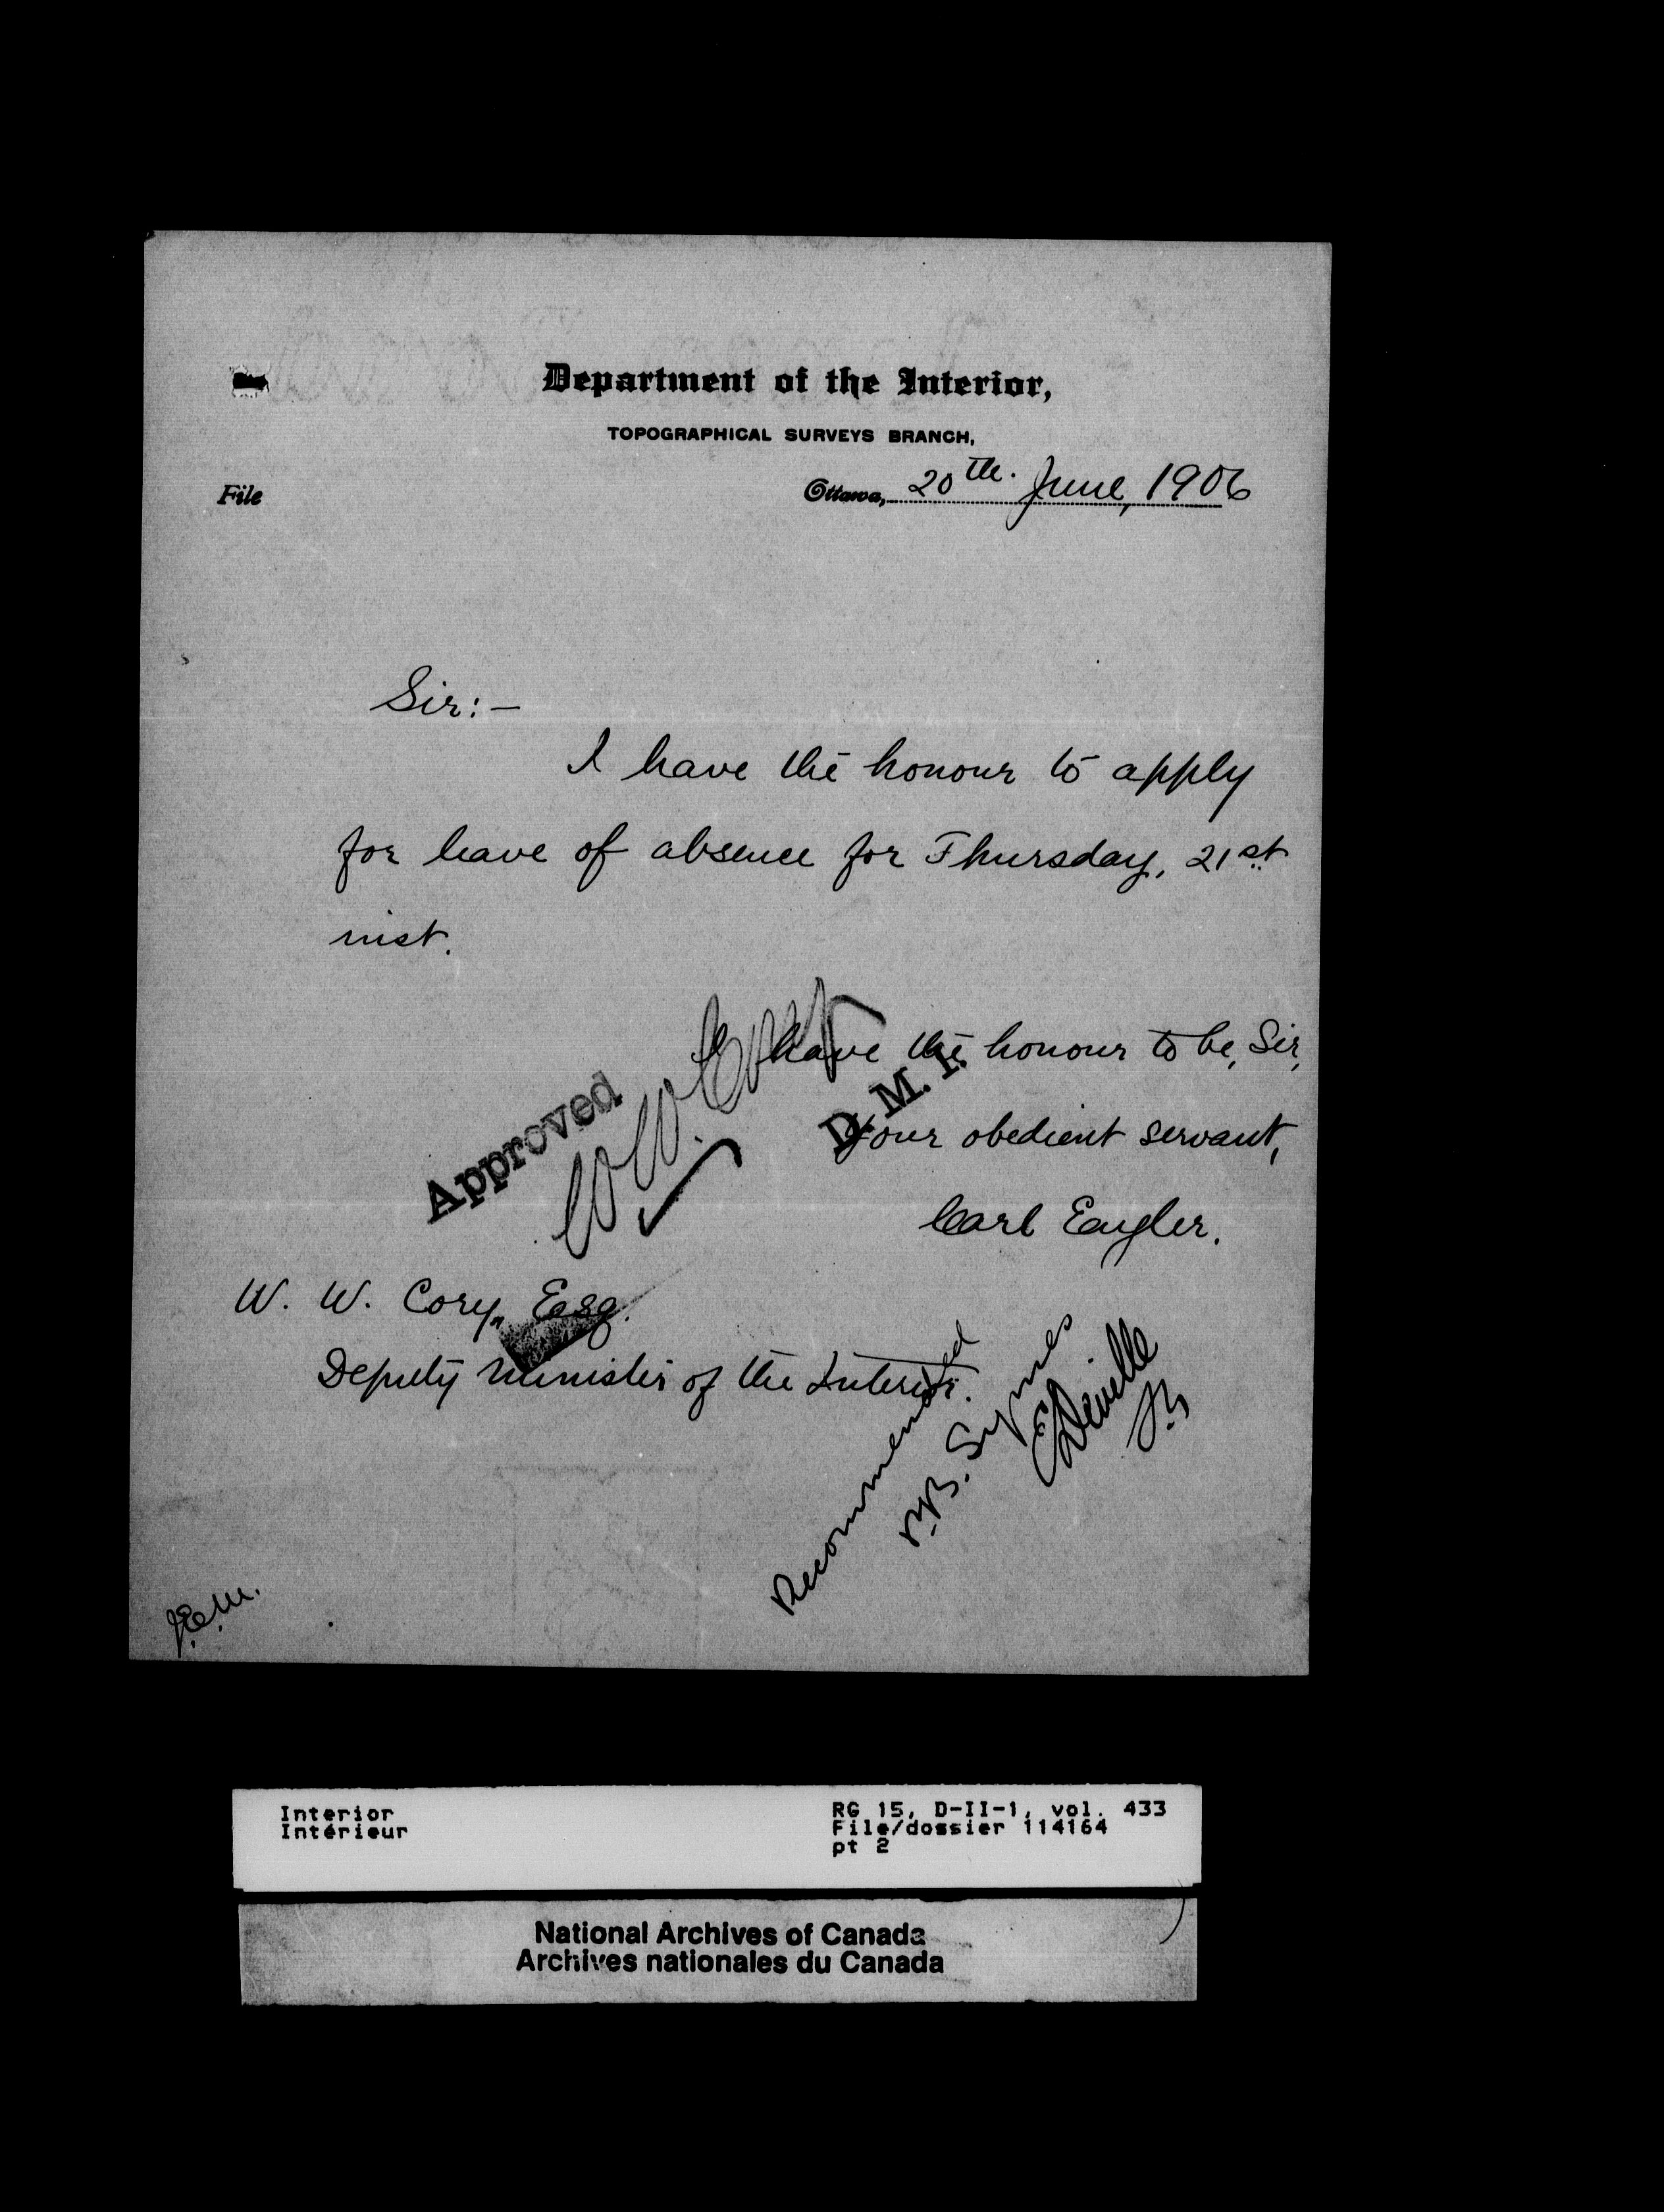 Department of the Interior,
TOPOGRAPHICAL SURVEYS BRANCH,
File
Ottawa, 20th. June, 1906
Sir:-
I have the honour to apply
for leave of absence for Thursday, 21st.
inst.
I have the honour to be, Sir,
Your obedient servant,
Carl Engler.
Approved
W. W. Cory
D. M. I.
W. W. Cory, Esq.
Deputy Minister of the Interior.
Recommended
P.B. Symes
E Deville
J.E.W.
Interior
Intérieur
RG 15, D-II-1, vol. 433
File/dossier 114164
pt 2
National Archives of Canada
Archives nationales du Canada